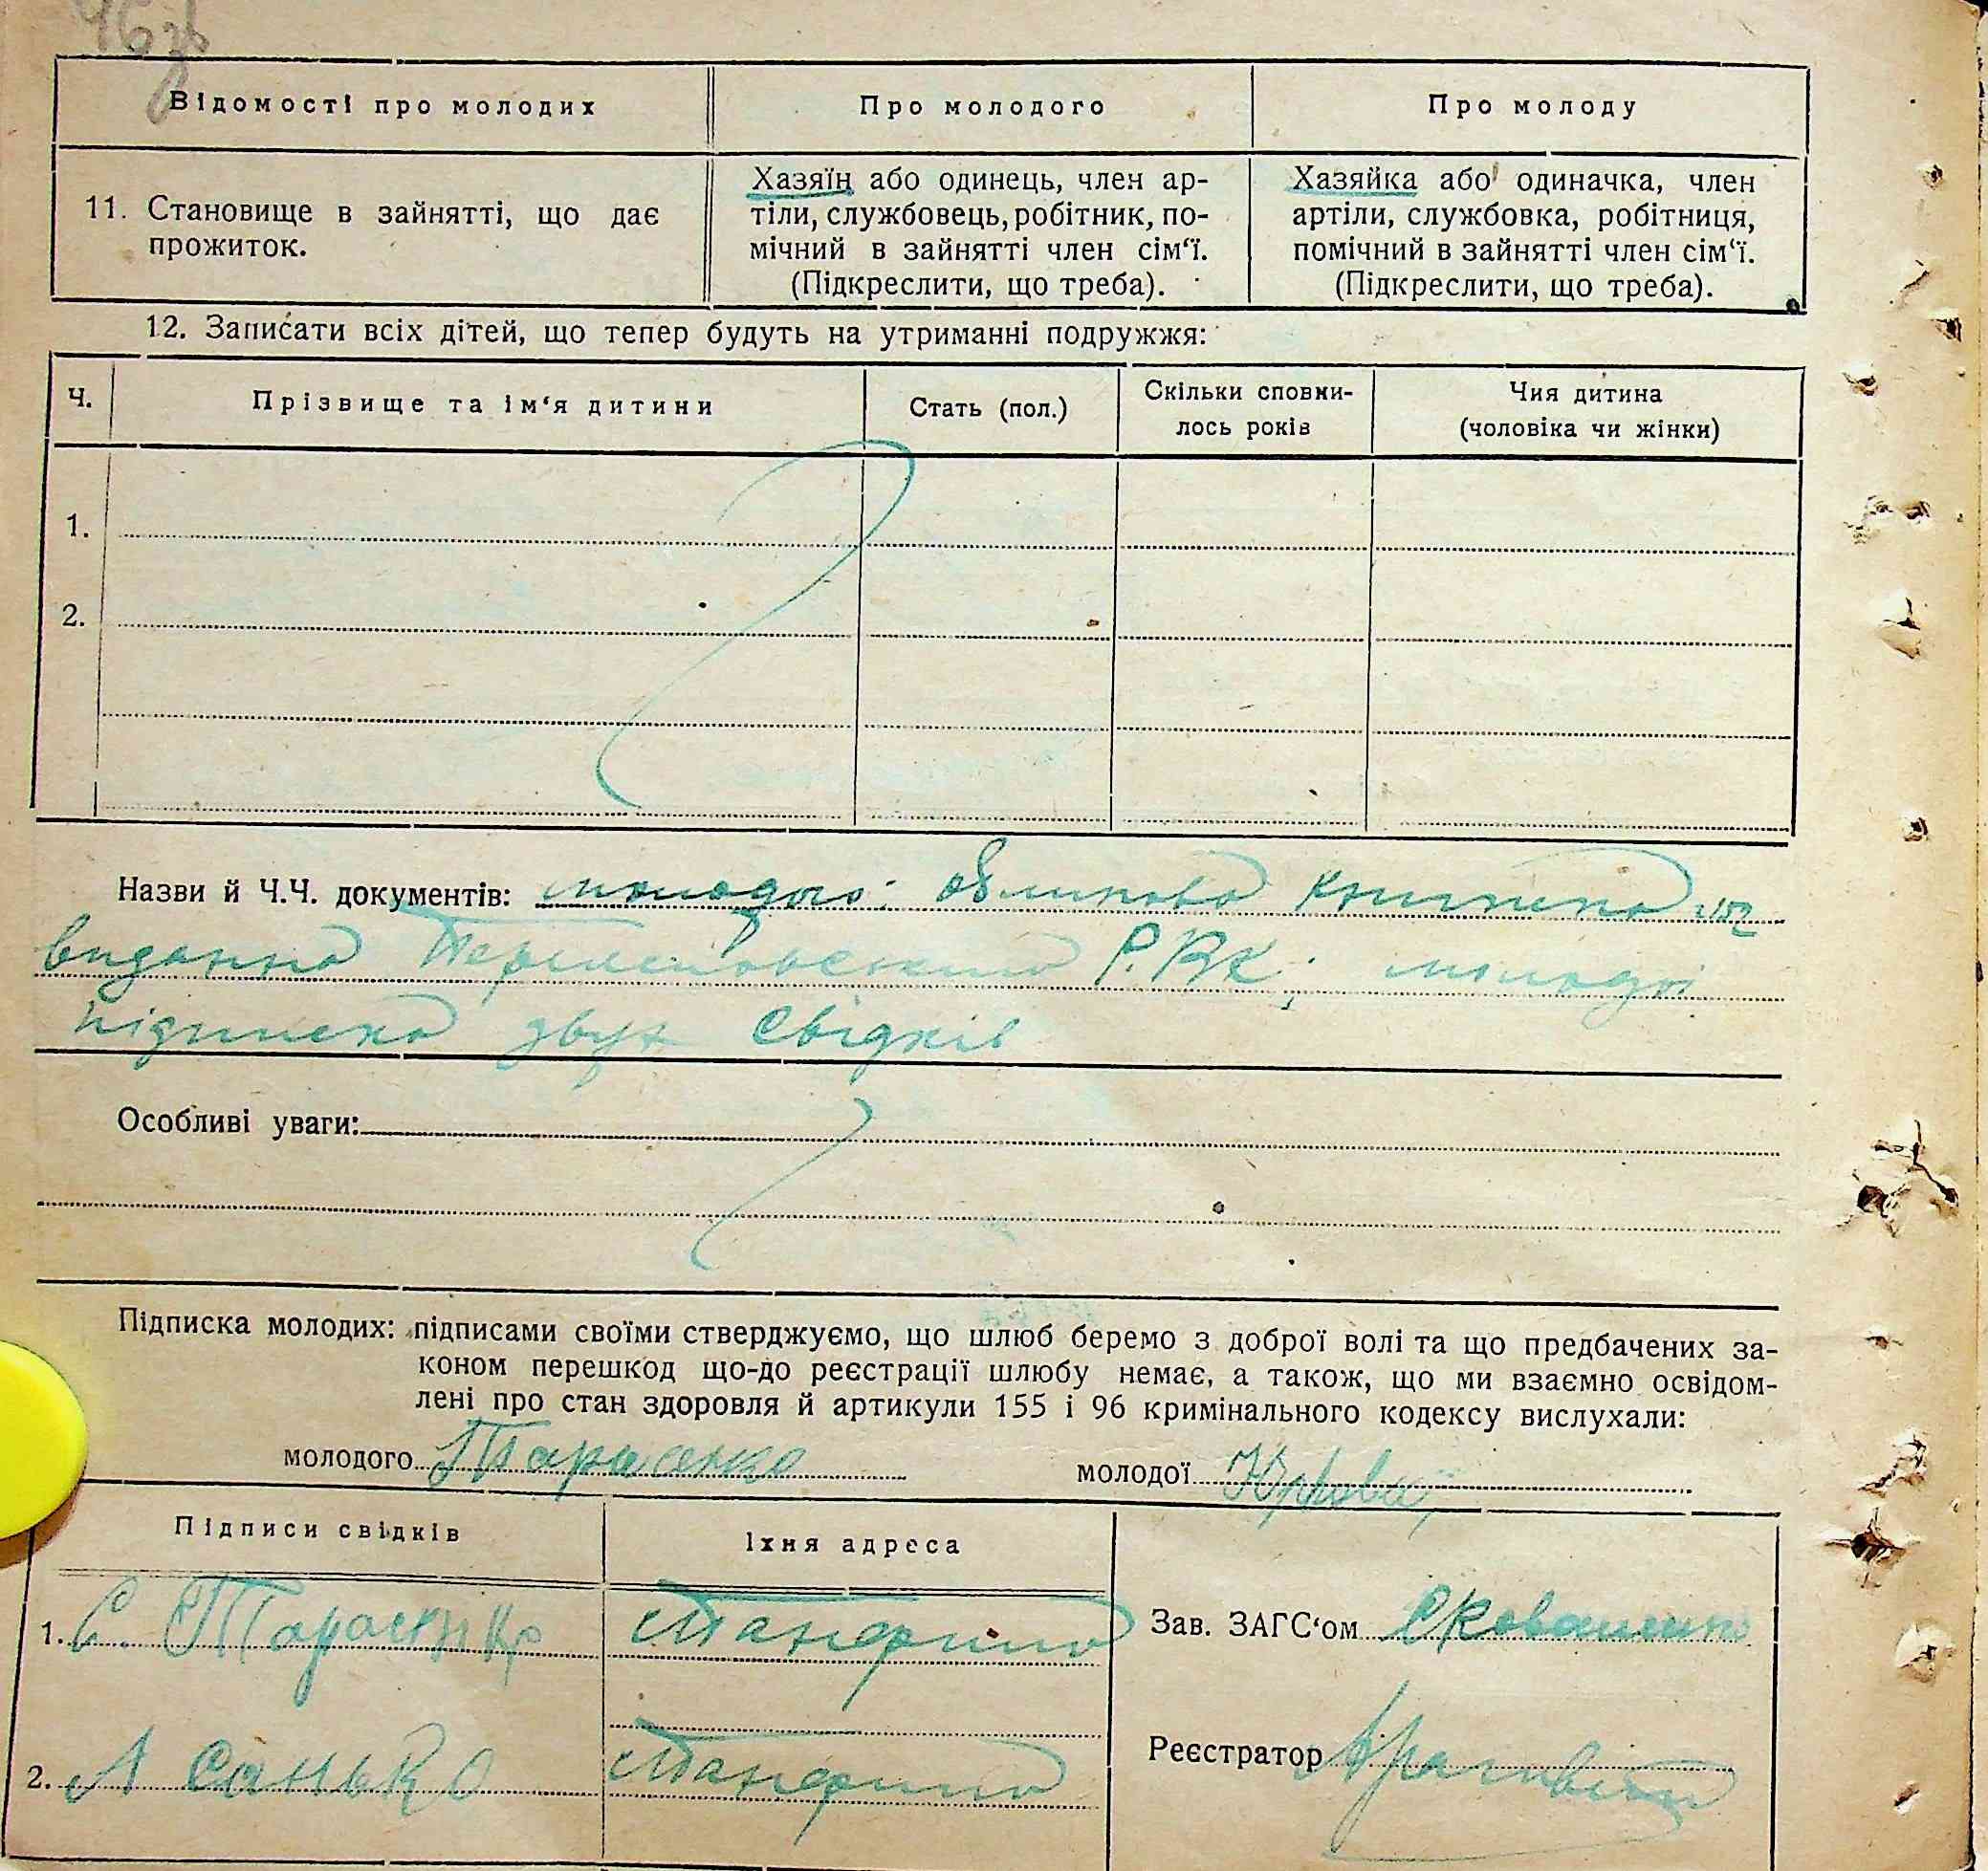 46 зв
Відомості про молодих
Про молодого
Про молоду
11. Становище в зайнятті, що дає
прожиток.
Хазяїн або одинець, член ар-
тіли, службовець, робітник, по-
мічний в зайнятті член сім‘ї.
(Підкреслити, що треба).
Хазяйка або одиначка, член
артіли, службовка, робітниця,
помічний в зайнятті член сім‘ї.
(Підкреслити, що треба).
12. Записати всіх дітей, що тепер будуть на утриманні подружжя:
Ч.
Прізвище та ім‘я дитини
Стать (пол.)
Скільки сповни-
лось років
Чия дитина
(чоловіка чи жінки)
1.
2.
Назви й Ч.Ч. документів: молодого: облікова книжка 152
видана Р.ВК; молодої
підписка двух свідків
Особливі уваги:
Підписка молодих: підписами своїми стверджуємо, що шлюб беремо з доброї волі та що предбачених за-
коном перешкод що-до реєстрації шлюбу немає, а також, що ми взаємно освідом-
лені про стан здоровля й артикули 155 і 96 кримінального кодексу вислухали:
молодого Тарасенко
молодої
Підписи свідків
Їхня адреса
1. С. Тарасенко
2. А Санько
Зав. ЗАГС‘ом
Реєстратор